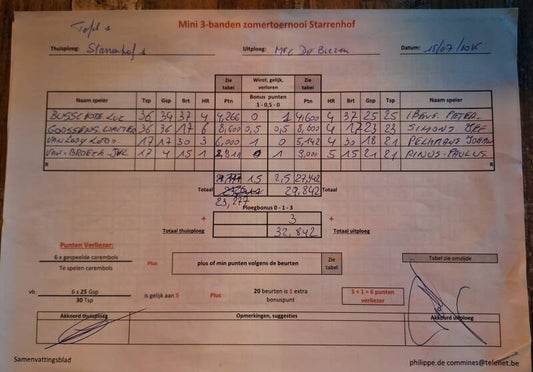 Tafel 1
Mini 3-banden zomertoernooi Starrenhof
Thuisploeg: Starrenhof 1 Uitploeg: De Datum: 15/07/
Zie tabel Winst, gelijk, verloren Zie tabel
Naam speler Tsp Gsp Brt HR Ptn Bonus punten 1 - 0,5 - 0 Ptn HR Brt Gsp Tsp Naam speler
LUC 36 34 37 4 4,266 0 1 4,600 4 37 25 25 PETER
GOOSSENS WALTER 36 36 17 6 8,600 0,5 0,5 8,600 4 17 23 23 SIMONS JEF
VAN LOOY LOUIS 17 17 30 3 6,000 1 0 5,142 4 30 18 21 JOHAN
VAN BROECK 17 4 15 1 0 1 9,000 5 15 21 21 PINUS PAULUS
R R
1,5 2,5 27,342
Totaal 29,842 Totaal
23,277
Ploegbonus 0 - 1 - 3
+ 3 +
Totaal thuisploeg 32,842 Totaal uitploeg
Punten Verliezer:
6 x gespeelde carembols
Te spelen carembols
Plus
plus of min punten volgens de beurten
Zie tabel
Tabel zie omzijde
vb. 6 x 25 Gsp
30 Tsp
is gelijk aan 5 Plus 20 beurten is 1 extra bonuspunt
5 + 1 = 6 punten verliezer
Akkoord thuisploeg Opmerkingen, suggesties Akkoord uitploeg
Samenvattingsblad philippe.de commines@telenet.be